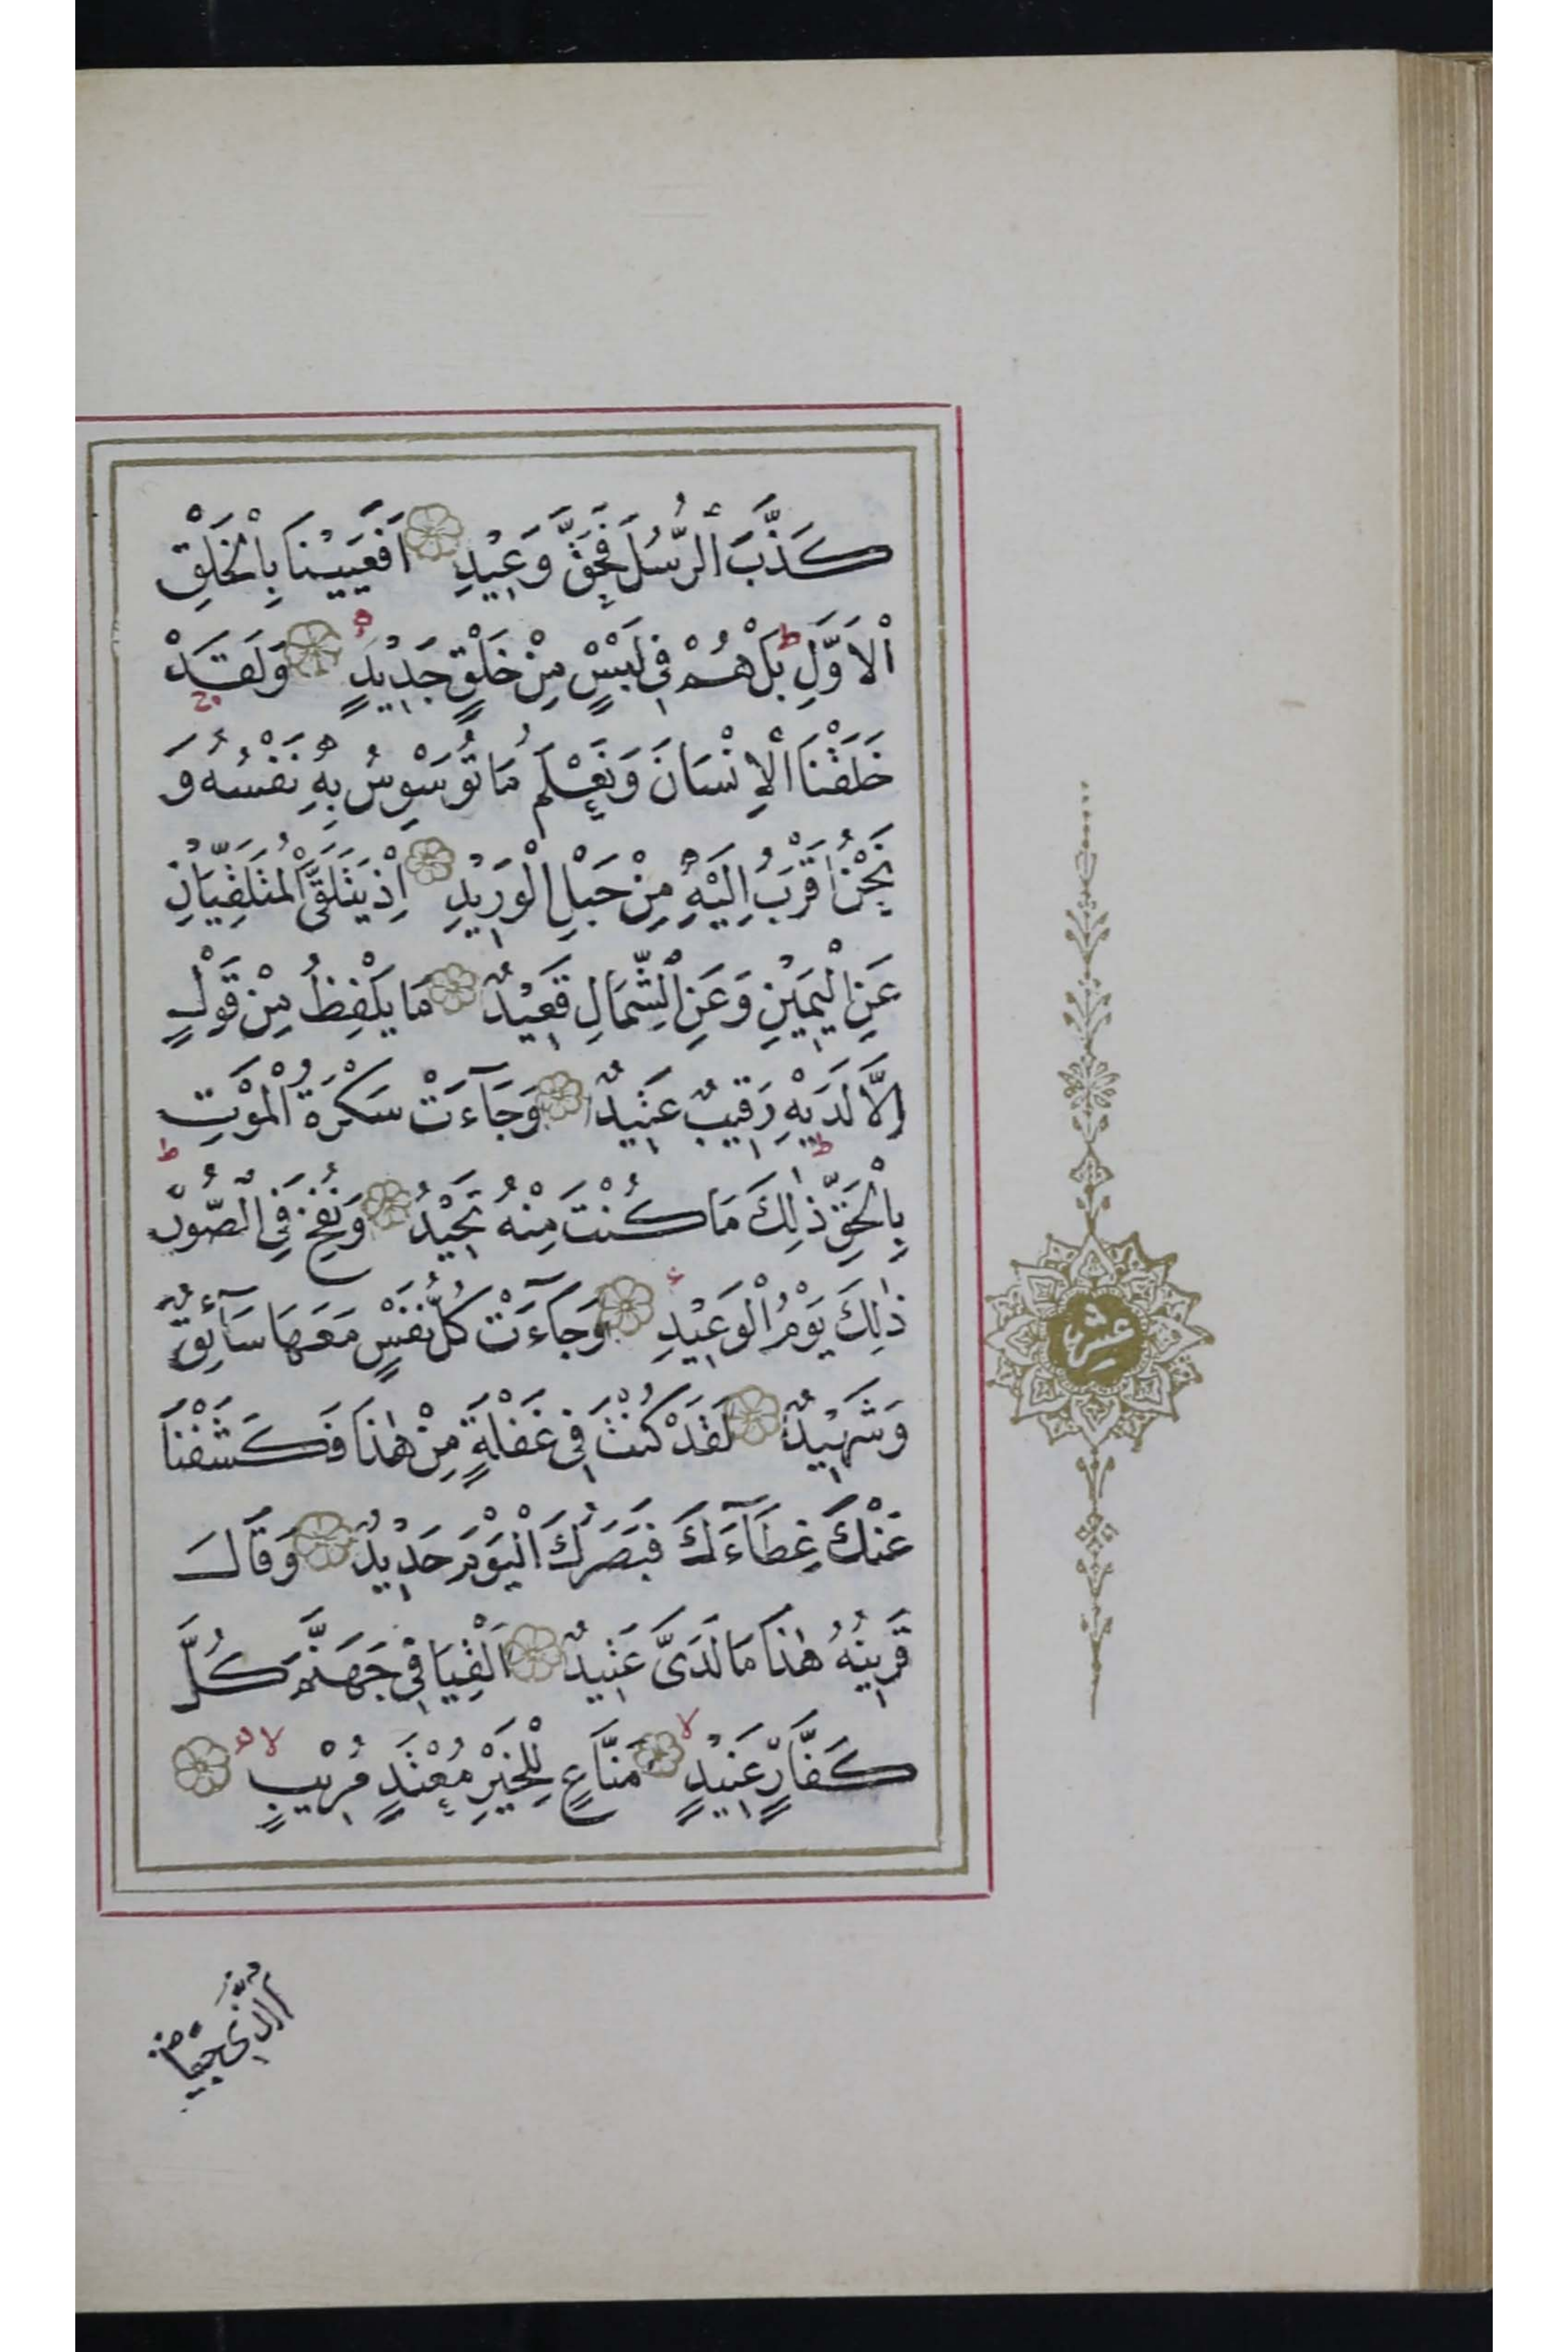 كَذَّبَ الرُّسُلَ فَحَقَّ وَعِيدِ اَفَعَيِينَا بِالْخَلْقِ
الْاَوَّلِ ط بَلْ هُمْ فِي لَبْسٍ مِنْ خَلْقٍ جَدِيدٍ وَلَقَدْ
خَلَقْنَا الْاِنْسَانَ وَنَعْلَمُ مَا تُوَسْوِسُ بِهِ نَفْسُهُ وَ
نَحْنُ اَقْرَبُ اِلَيْهِ مِنْ حَبْلِ الْوَرِيدِ اِذْ يَتَلَقَّى الْمُتَلَقِّيَانِ
عَنِ الْيَمِينِ وَعَنِ الشِّمَالِ قَعِيدٌ مَا يَلْفِظُ مِنْ قَوْلٍ
اِلَّا لَدَيْهِ رَقِيبٌ عَتِيدٌ وَجَآءَتْ سَكْرَةُ الْمَوْتِ
بِالْحَقِّ ط ذٰلِكَ مَا كُنْتَ مِنْهُ تَحِيدُ وَنُفِخَ فِي الصُّورِ ط
ذٰلِكَ يَوْمُ الْوَعِيدِ وَجَآءَتْ كُلُّ نَفْسٍ مَعَهَا سَآئِقٌ
وَشَهِيدٌ لَقَدْ كُنْتَ فِي غَفْلَةٍ مِنْ هٰذَا فَكَشَفْنَا
عَنْكَ غِطَآءَكَ فَبَصَرُكَ الْيَوْمَ حَدِيدٌ وَقَالَ
قَرِينُهُ هٰذَا مَا لَدَيَّ عَتِيدٌ اَلْقِيَا فِي جَهَنَّمَ كُلَّ
كَفَّارٍ عَنِيدٍ لا مَنَّاعٍ لِلْخَيْرِ مُعْتَدٍ مُرِيبٍ لا
عشر
الَّذِي جَعَلَ